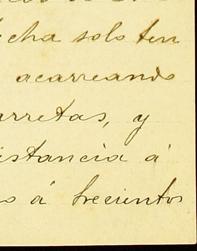 cha solo ten
acarreando
rretas, y
istancia á
s á trecientos